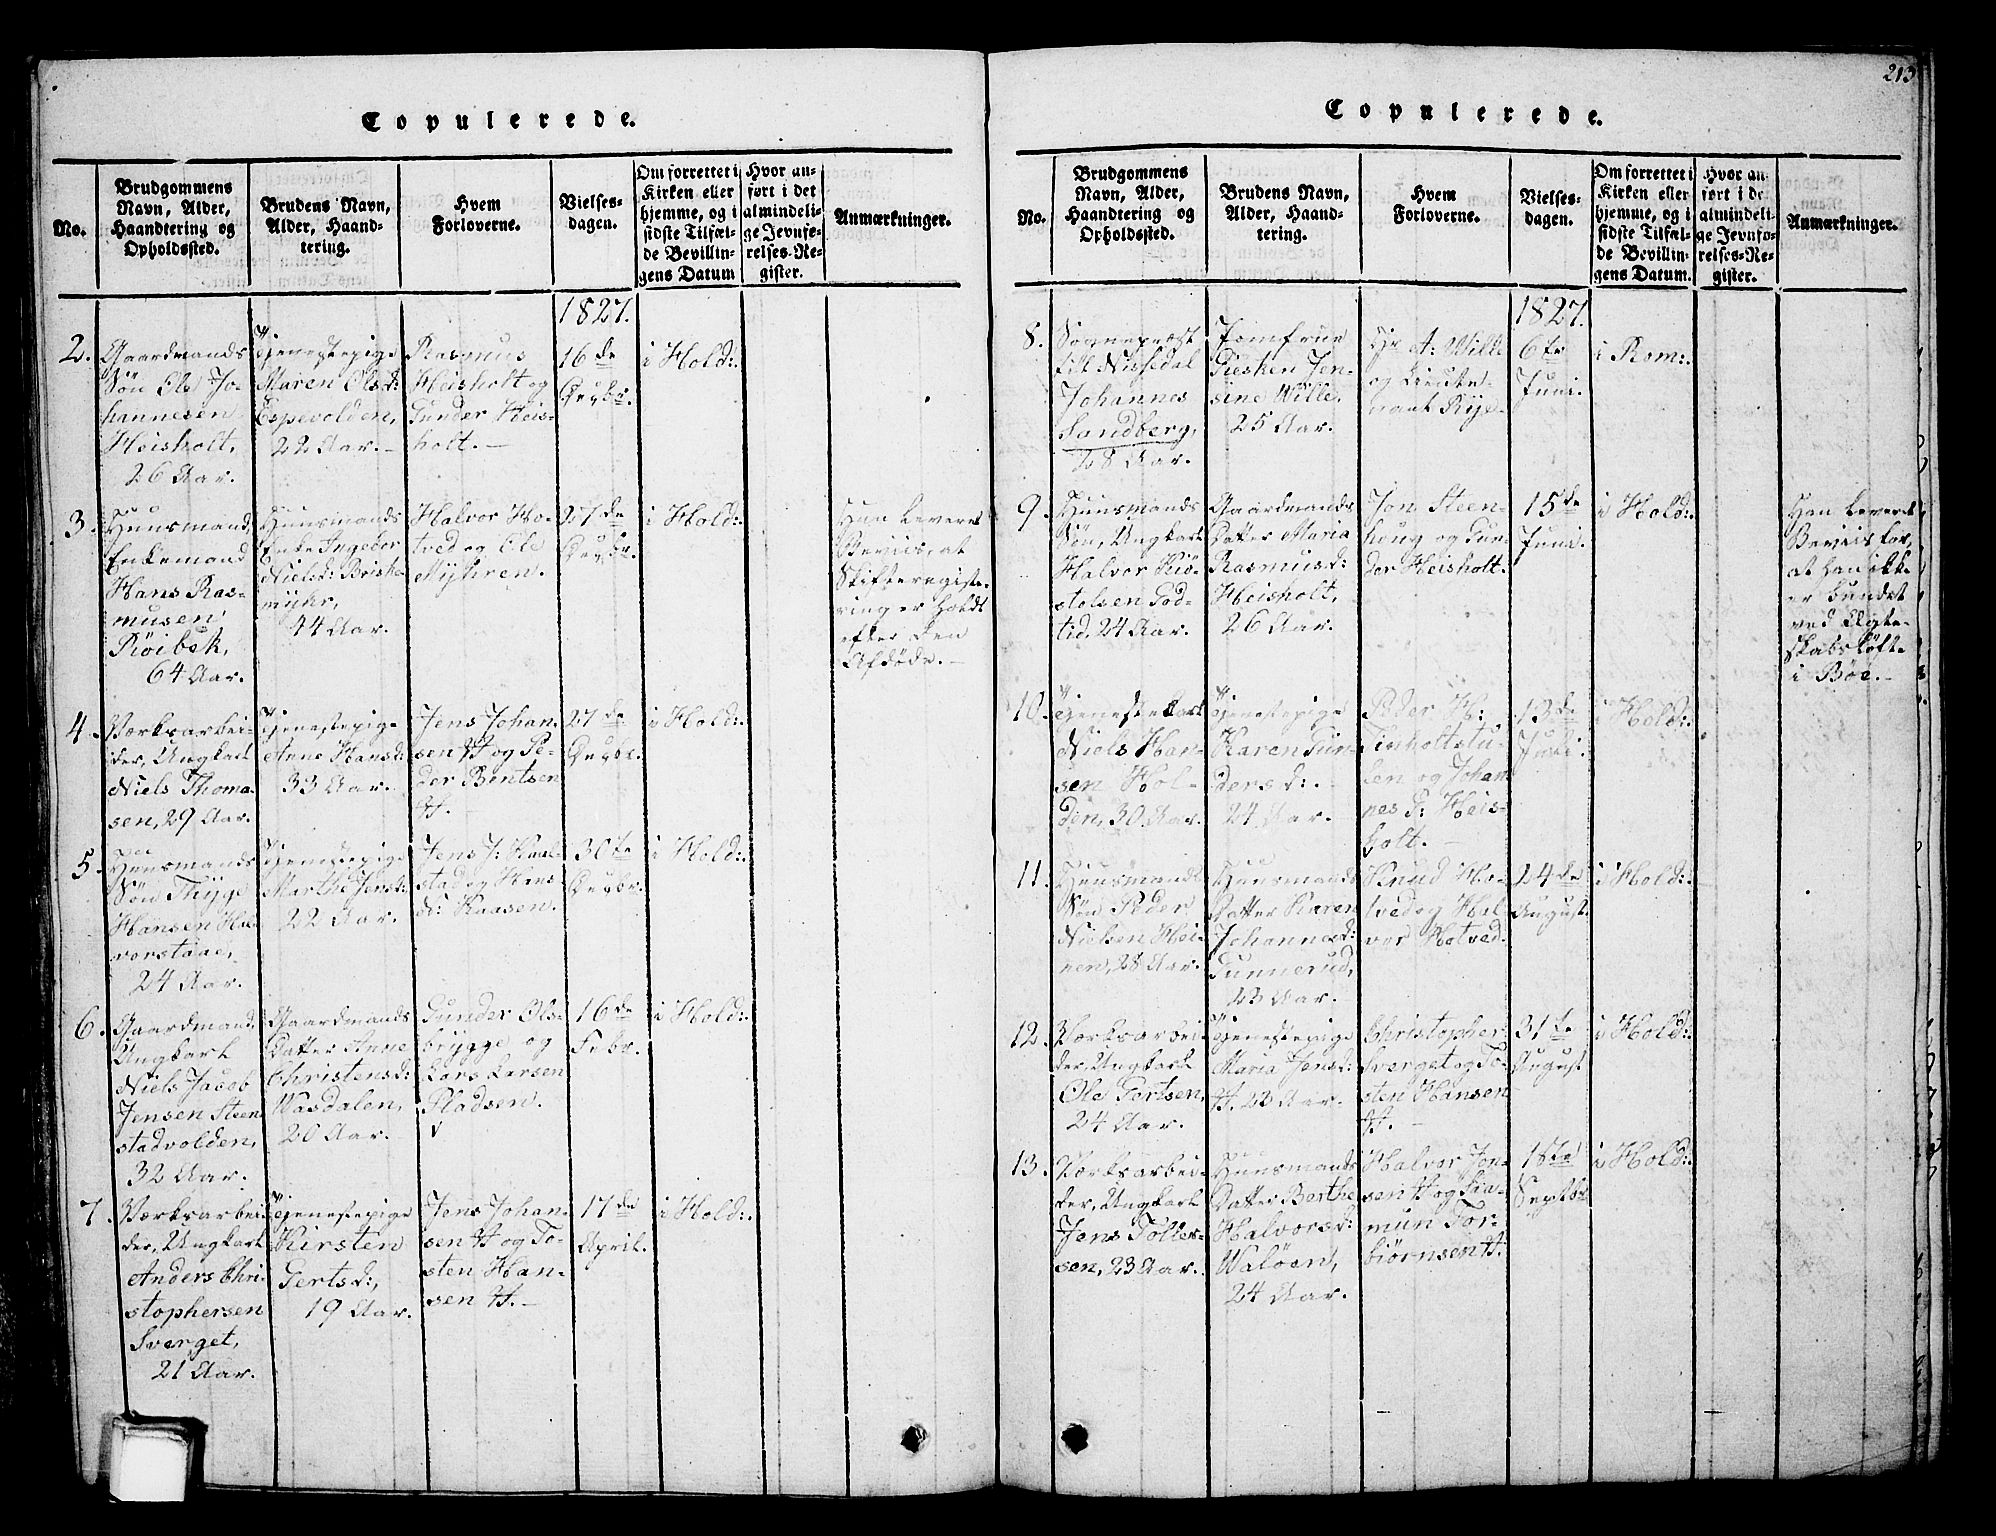 Copulerede.
No.
Brudgommens
Navn, Alder,
Haandtering og
Opholdssted.
Brudens Navn,
Alder, Haand-
tering.
Hvem
Forloverne.
Vielses-
dagen.
Om forrettet i
Kirken eller
hjemme, og i
sidste Tilfæl-
de Bevillin-
gens Datum
Hvor an-
ført i det
almindeli-
ge Jevnfø-
relses-Re-
gister.
Anmærkninger.
1827.
2.
Gaardmands
Søn Ole Jo-
hannesen
Heisholt,
26 Aar.
Tjenestepige
Maren Olsd:
Espevolden,
22 Aar.
Rasmus
Heisholt og
Gunder Heis-
holt.
16de
i Hold:.
3.
Huusmand,
Enkemand
Hans Ras-
musen
Röibek,
64 Aar.
Huusmands
Enke Ingebor
Nielsd: Briske-
myhr,
44 Aar.
Halvor Ho-
tved og Ole
Myhren.
27de
i Hold:.
Han leveret
Beviis, at
Skifteregiste-
ring er holdt
efter den
Afdöde.
4.
Værksarbei-
der, Ungkarl
Niels Thoma-
sen, 29 Aar.
Tjenestepige
Anne Hansd:
33 Aar.
Jens Johan-
sen H og Pe-
der Bentsen
H.
27de
i Hold:.
5.
Huusmands
Søn Thyge
Hansen Hal-
vorstaae,
24 Aar.
Tjenestepige
Marthe Jensd:
22 Aar.
Jens J: Kaal-
stad og Hans
Kaasen.
30te
i Hold:.
6.
Gaardmand,
Ungkarl
Niels Jacob
Jensen Steen
stadvolden,
32 Aar.
Gaardmands
Datter Anne
Christensd:
Wasdalen,
20 Aar.
Gunder Ols-
brygge og
Lars Larsen
Pladsen.
16de
Febr.
i Hold:.
7.
Værksarbei-
der, Ungkarl
Anders Chri-
stophersen
Sverget,
21 Aar.
Tjenestepige
Kirsten
Gertsd:,
19 Aar.
Jens Johan-
sen H og To-
sten Han-
sen H.
17de
April.
i Hold:.
213
Copulerede.
No.
Brudgommens
Navn, Alder,
Haandtering og
Opholdssted.
Brudens Navn,
Alder, Haand-
tering.
Hvem
Forloverne.
Vielses-
dagen.
Om forrettet i
Kirken eller
hjemme, og i
sidste Tilfæl-
de Bevillin-
gens Datum.
Hvor an-
ført i de
almindeli-
ge Jevnfø-
relses-Re-
gister.
Anmærkninger.
1827.
8.
Sognepræst
til Nissedal
Johannes
Sandberg,
28 Aar.
Jomfrue
Giesken Jen-
sine Wille,
25 Aar.
Hr A: Wille
og Lieute-
nant Rye.
6te
Juni.
i Rom:.
9.
Huusmands
Søn, Ungkarl
Halvor Kiö-
stolsen God-
tid, 24 Aar.
Gaardmands
Datter Maria
Rasmusd:
Heisholt,
26 Aar.
Jon Steen-
houg og Gun-
der Heisholt.
15de
Juni.
i Hold:.
Han leveret
Beviis for,
at han ikke
er bundet
ved Ægte-
skabslöfte
i Böe.
10.
Tjenestekarl
Niels Han-
sen Hol-
den, 30 Aar.
Tjenestepige
Karen Gun-
dersd:.
24 Aar.
Peder H:
Tinholtstu-
len og Johan
nes G: Heis-
holt.
13de
Juli.
i Hold:.
11.
Huusmands
Søn Peder
Nielsen Hei-
nen, 28 Aar.
Huusmands
Datter Karen
Johannesd:
Gunnerud,
23 Aar.
Knud Ho-
tved og Hal-
vor Hotved.
24de
August.
i Hold:.
12.
Værksarbei-
der, Ungkarl
Ole Gertsen,
24 Aar.
Tjenestepige
Maria Jensd:
H. 23 Aar.
Christopher
Sverget og To-
sten Hansen
H.
31te
August
i Hold:.
13.
Værksarbei-
der, Ungkarl
Jens Tolles-
sen, 23 Aar.
Huusmands
Datter Berthe
Halvorsd:
Walöen,
24 Aar.
Halvor Jon-
sen H og Sia-
mun Tor-
biörnsen H:
18te
Septbr
i Hold:.